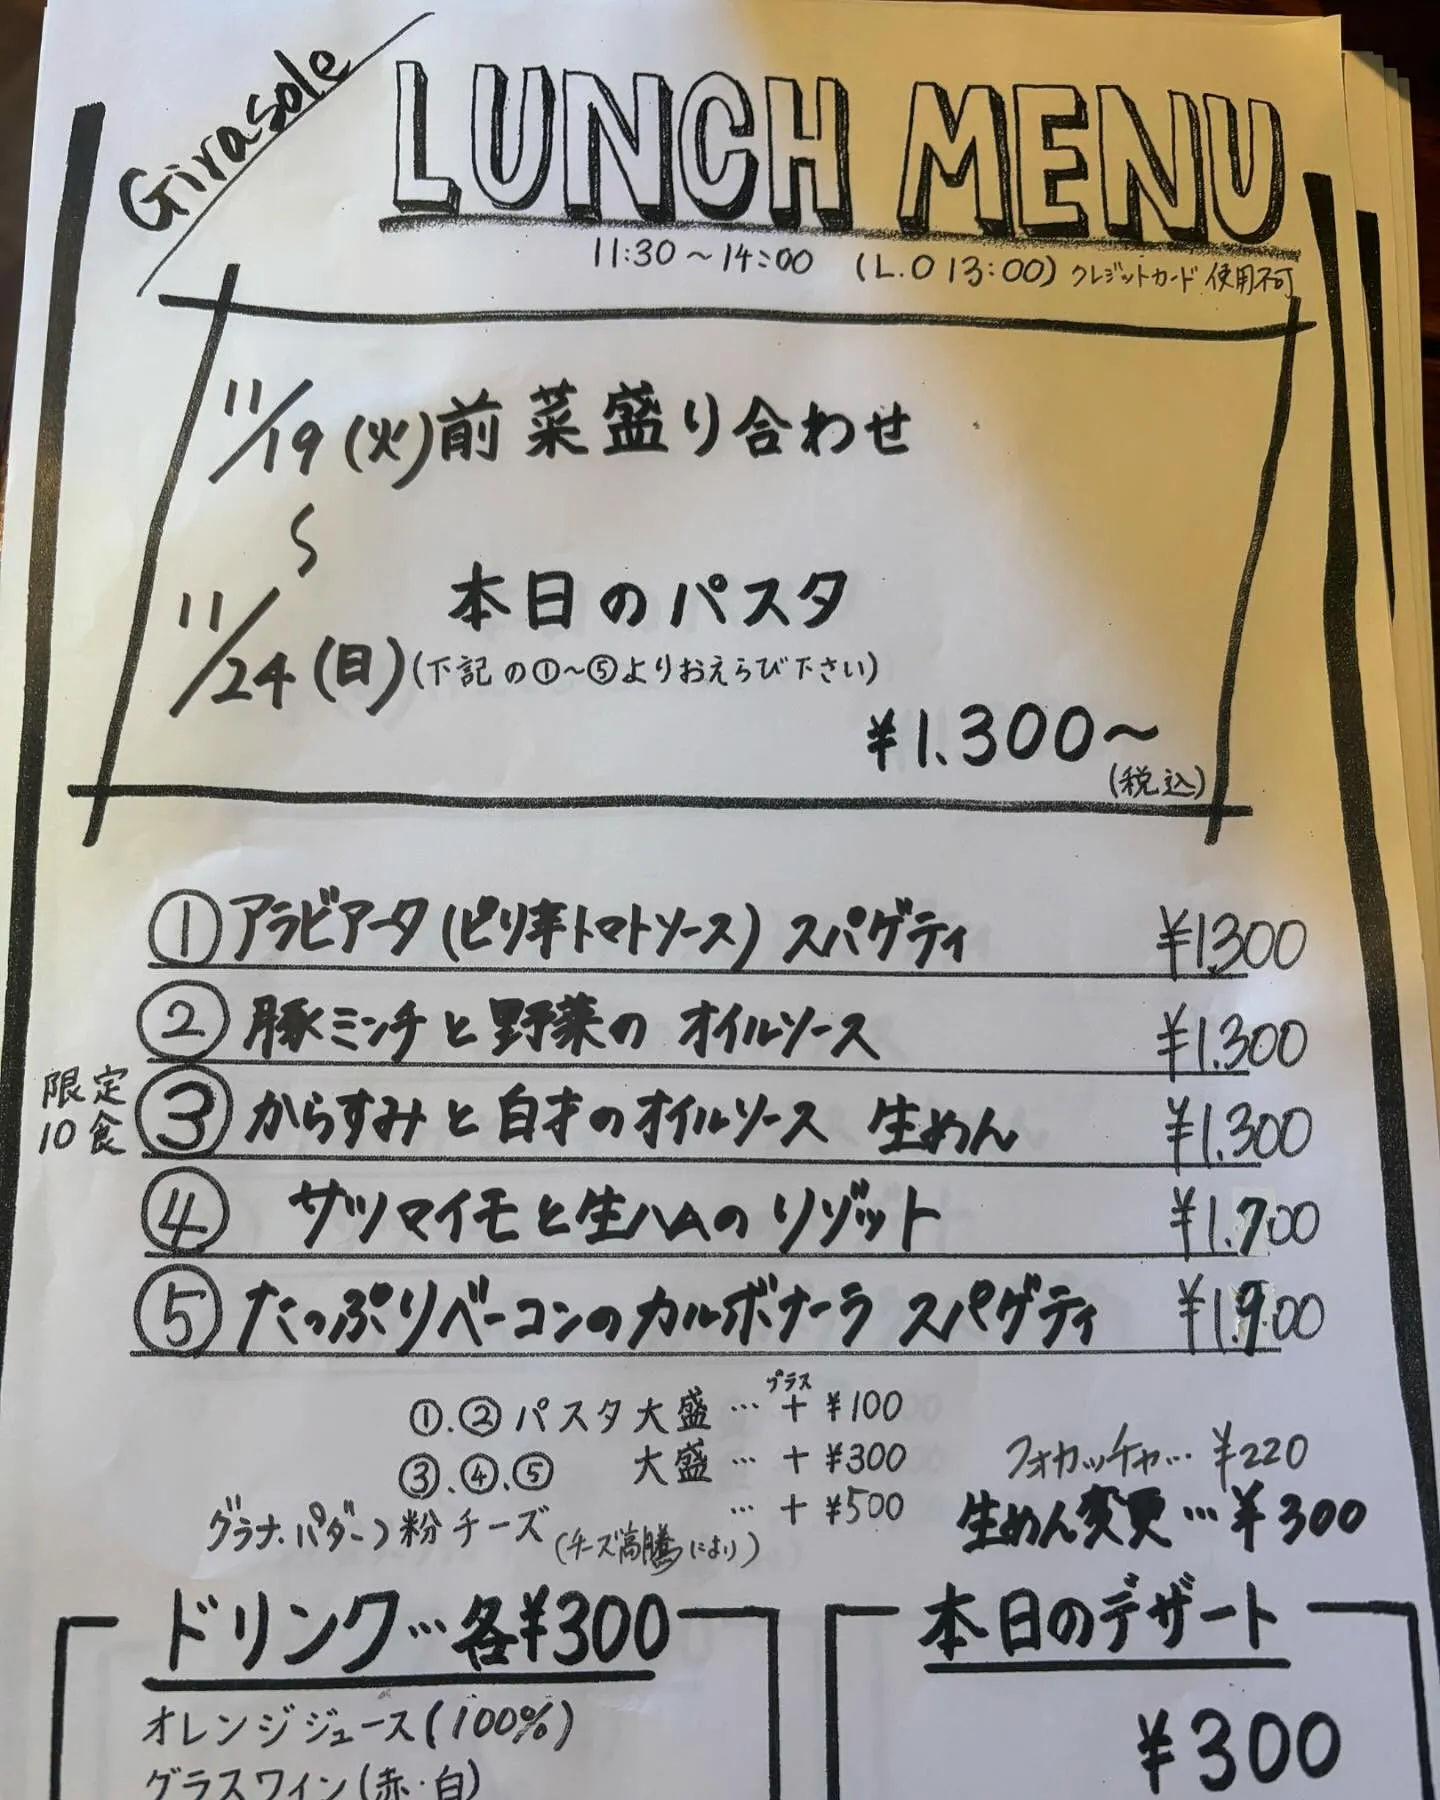 Girasole
LUNCH MENU
11:30～14:00 (L.O 13:00) クレジットカード 使用不可
11/19(火) 前菜盛り合わせ
〜
本日のパスタ
11/24(日) (下記の①～⑤よりおえらび下さい)
¥1.300～
(税込)
①アラビアータ(ピリ辛トマトソース) スパゲティ ¥1300
②豚ミンチと野菜の オイルソース ¥1.300
限定10食 ③からすみと白才のオイルソース 生めん ¥1.300
④ サツマイモと生ハムの リゾット ¥1.700
⑤たっぷりベーコンのカルボナーラ スパゲティ ¥1.900
①.②パスタ大盛…＋(プラス) ¥100
③.④.⑤ 大盛…＋¥300
グラナ.パダーノ粉チーズ (チーズ高騰により) …＋¥500
フォカッチャ…¥220
生めん変更…¥300
ドリンク…各¥300
オレンジジュース(100%)
グラスワイン(赤・白)
本日のデザート
¥300